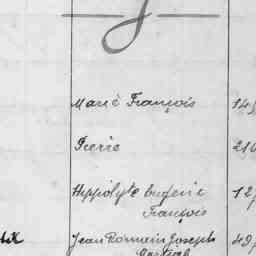 J
Marie François 14
Pierre 216
Hippolyte Eugenie 12
François
Jean Romain Joseph 49